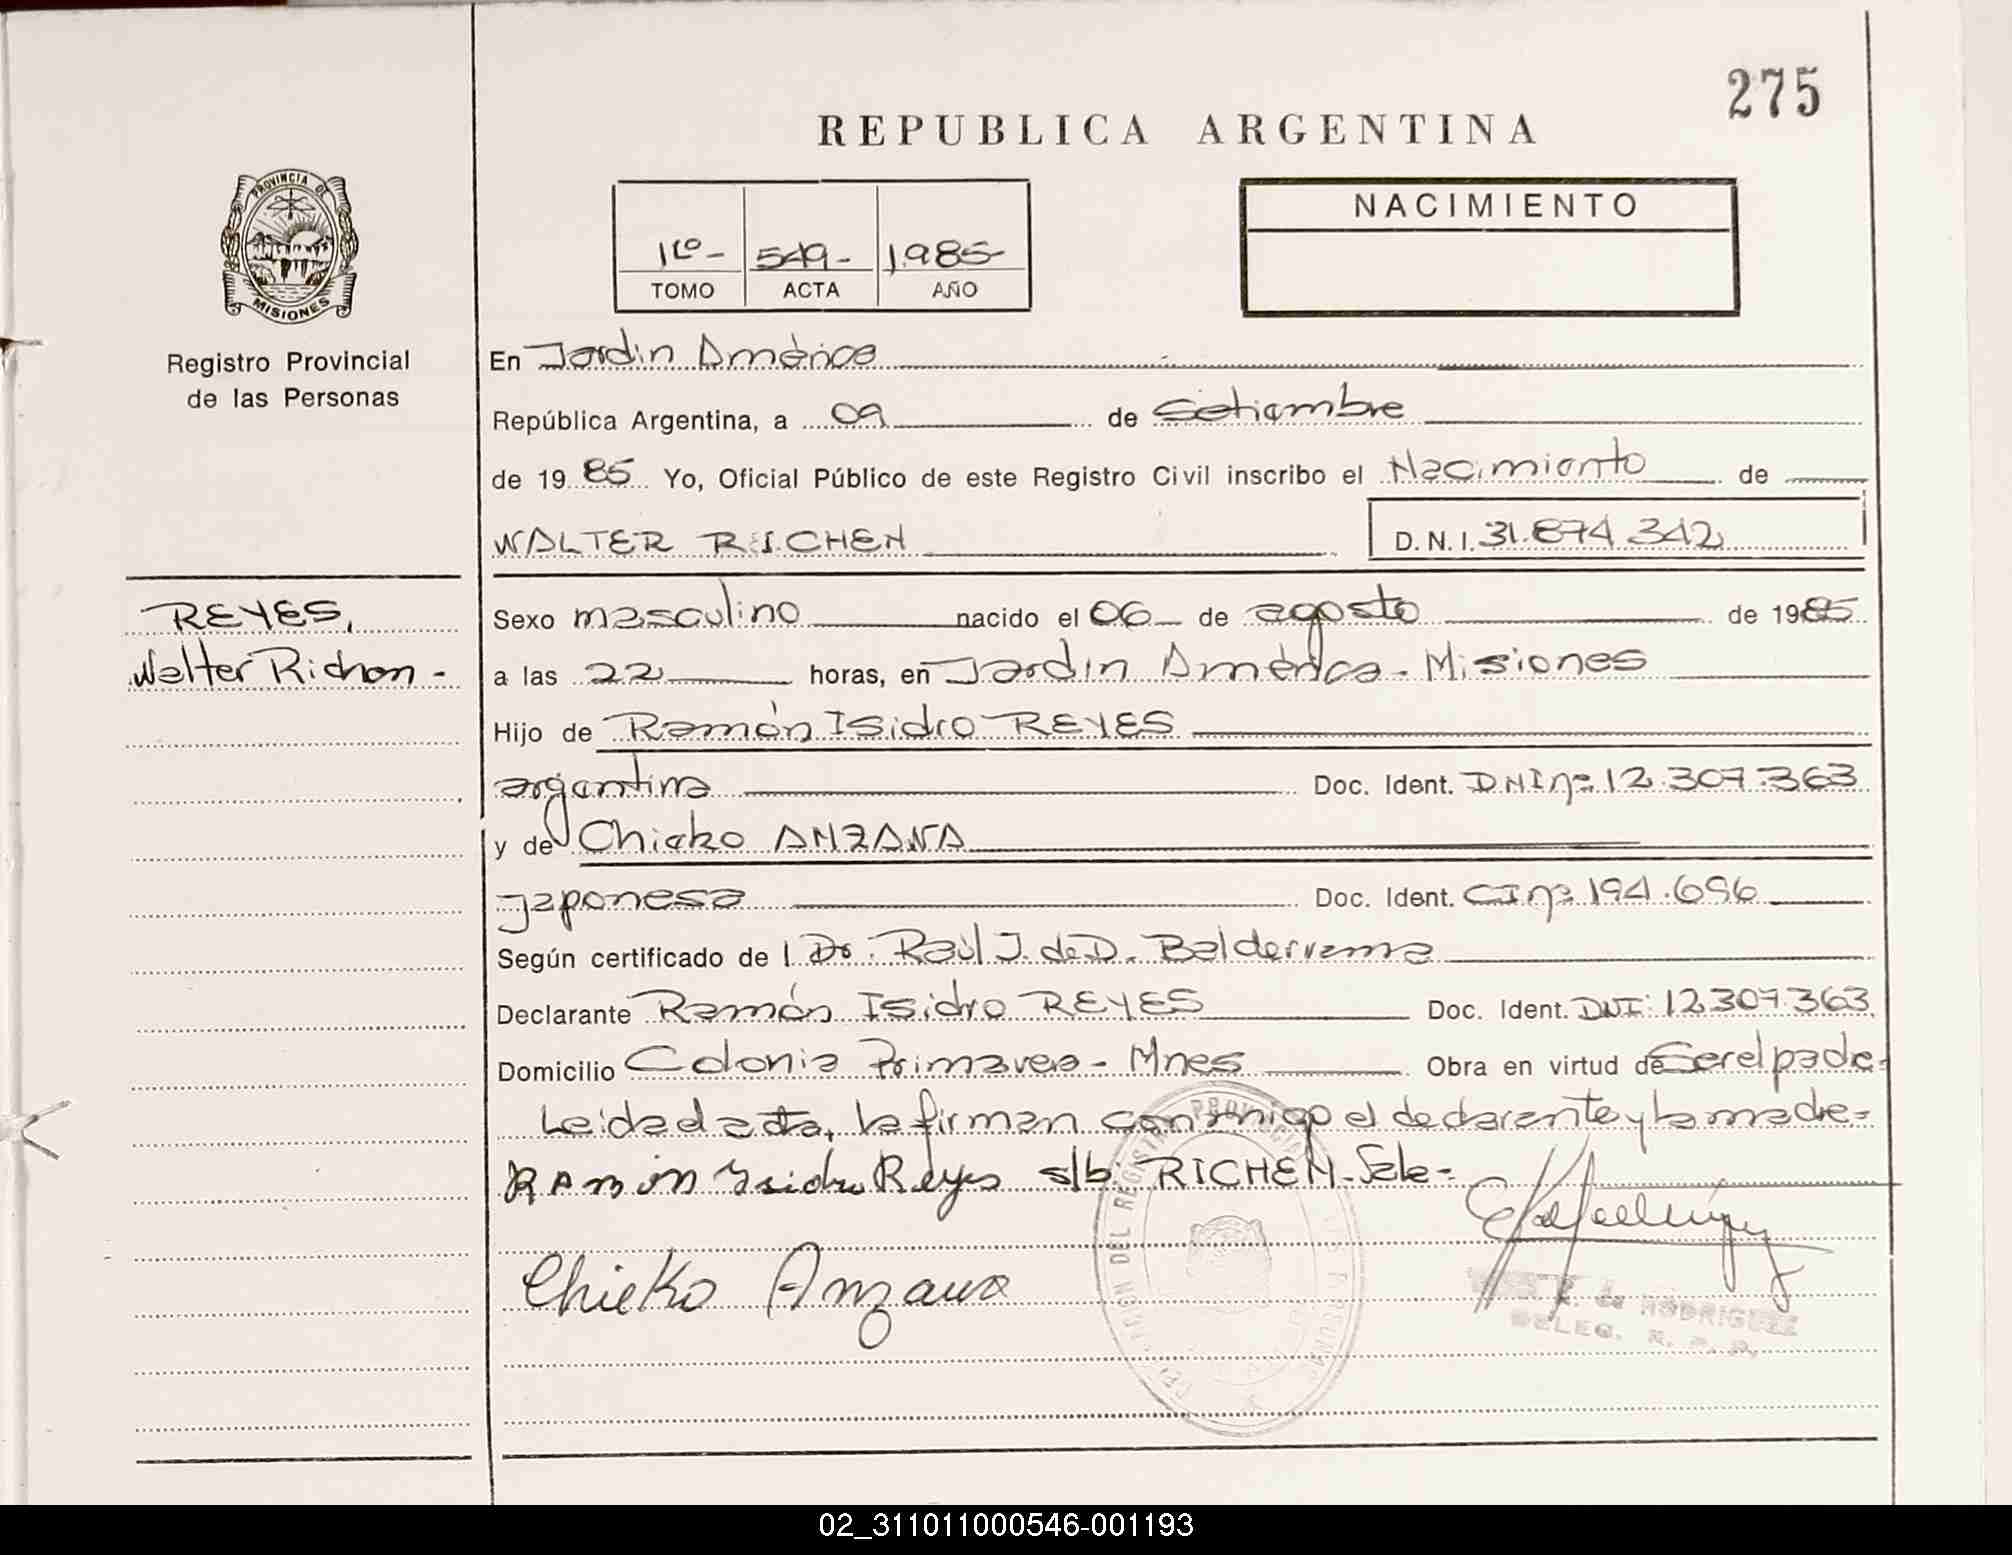 275
REPUBLICA ARGENTINA
PROVINCIA DE
MISIONES
Registro Provincial
de las Personas
1º- 549- 1985-
TOMO ACTA AÑO
NACIMIENTO
En Jardín América
República Argentina, a 09 de Setiembre
de 1985 Yo, Oficial Público de este Registro Civil inscribo el Nacimiento de
WALTER RICHEN D.N.I. 31.874.342
REYES,
Walter Richen -
Sexo masculino nacido el 06 de agosto de 1985
a las 22 horas, en Jardín América - Misiones
Hijo de Ramón Isidro REYES
argentina Doc. Ident. DNI nº 12.307.363
y de Chieko ANZAWA
japonesa Doc. Ident. CI nº 194.696
Según certificado de l Dr. Raúl J. de D. Balderrama
Declarante Ramón Isidro REYES Doc. Ident. DNI: 12307363
Domicilio Colonia Primavera - Mnes Obra en virtud de Ser el padre =
Leída el acta, la firman conmigo el declarante y la madre =
RAMON Isidro Reyes s/b: RICHEN. Vale =
Chieko Anzawa
de RODRIGUEZ
DELEG. R. P. P.
02_311011000546-001193